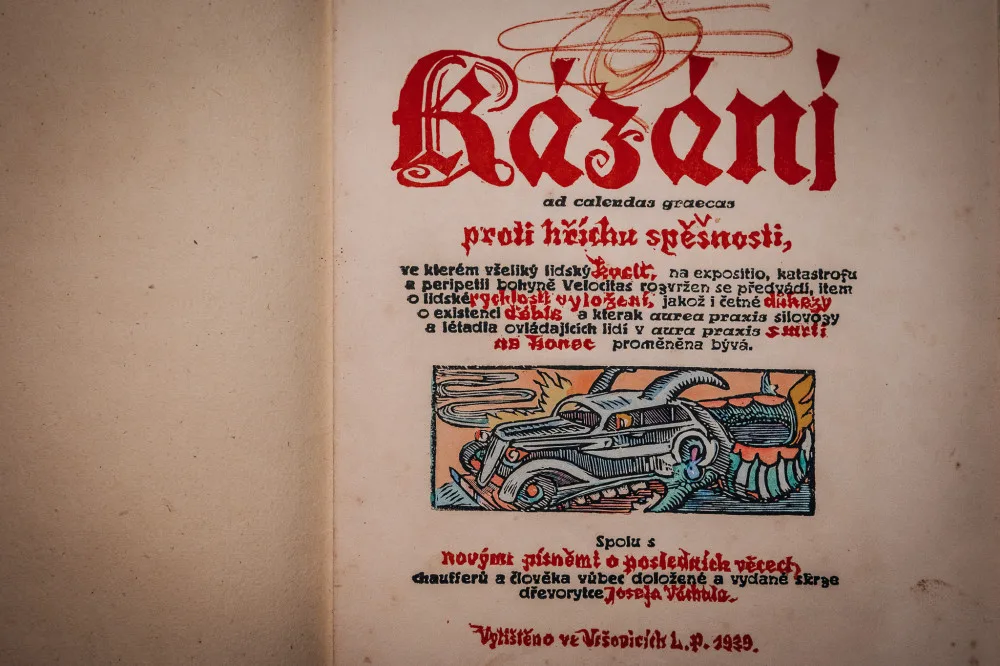 Kázání
ad calendas graecas
proti hříchu spěšnosti,
ve kterém všeliký lidský kvalt, na expositio, katastrofu
a peripetii bohyně Velocitas rozvržen se předvádí, item
o lidské rychlosti vyložení, jakož i četné důkazy
o existenci ďábla a kterak aurea praxis silovozy
a létadla ovládajících lidí v aura praxis smrti
na konec proměněna bývá.
Spolu s
novými písněmi o posledních věcech,
chaufferů a člověka vůbec doložené a vydané skrze
dřevorytce Josefa Váchala.
Vytištěno ve Vršovicích L. P. 1939.